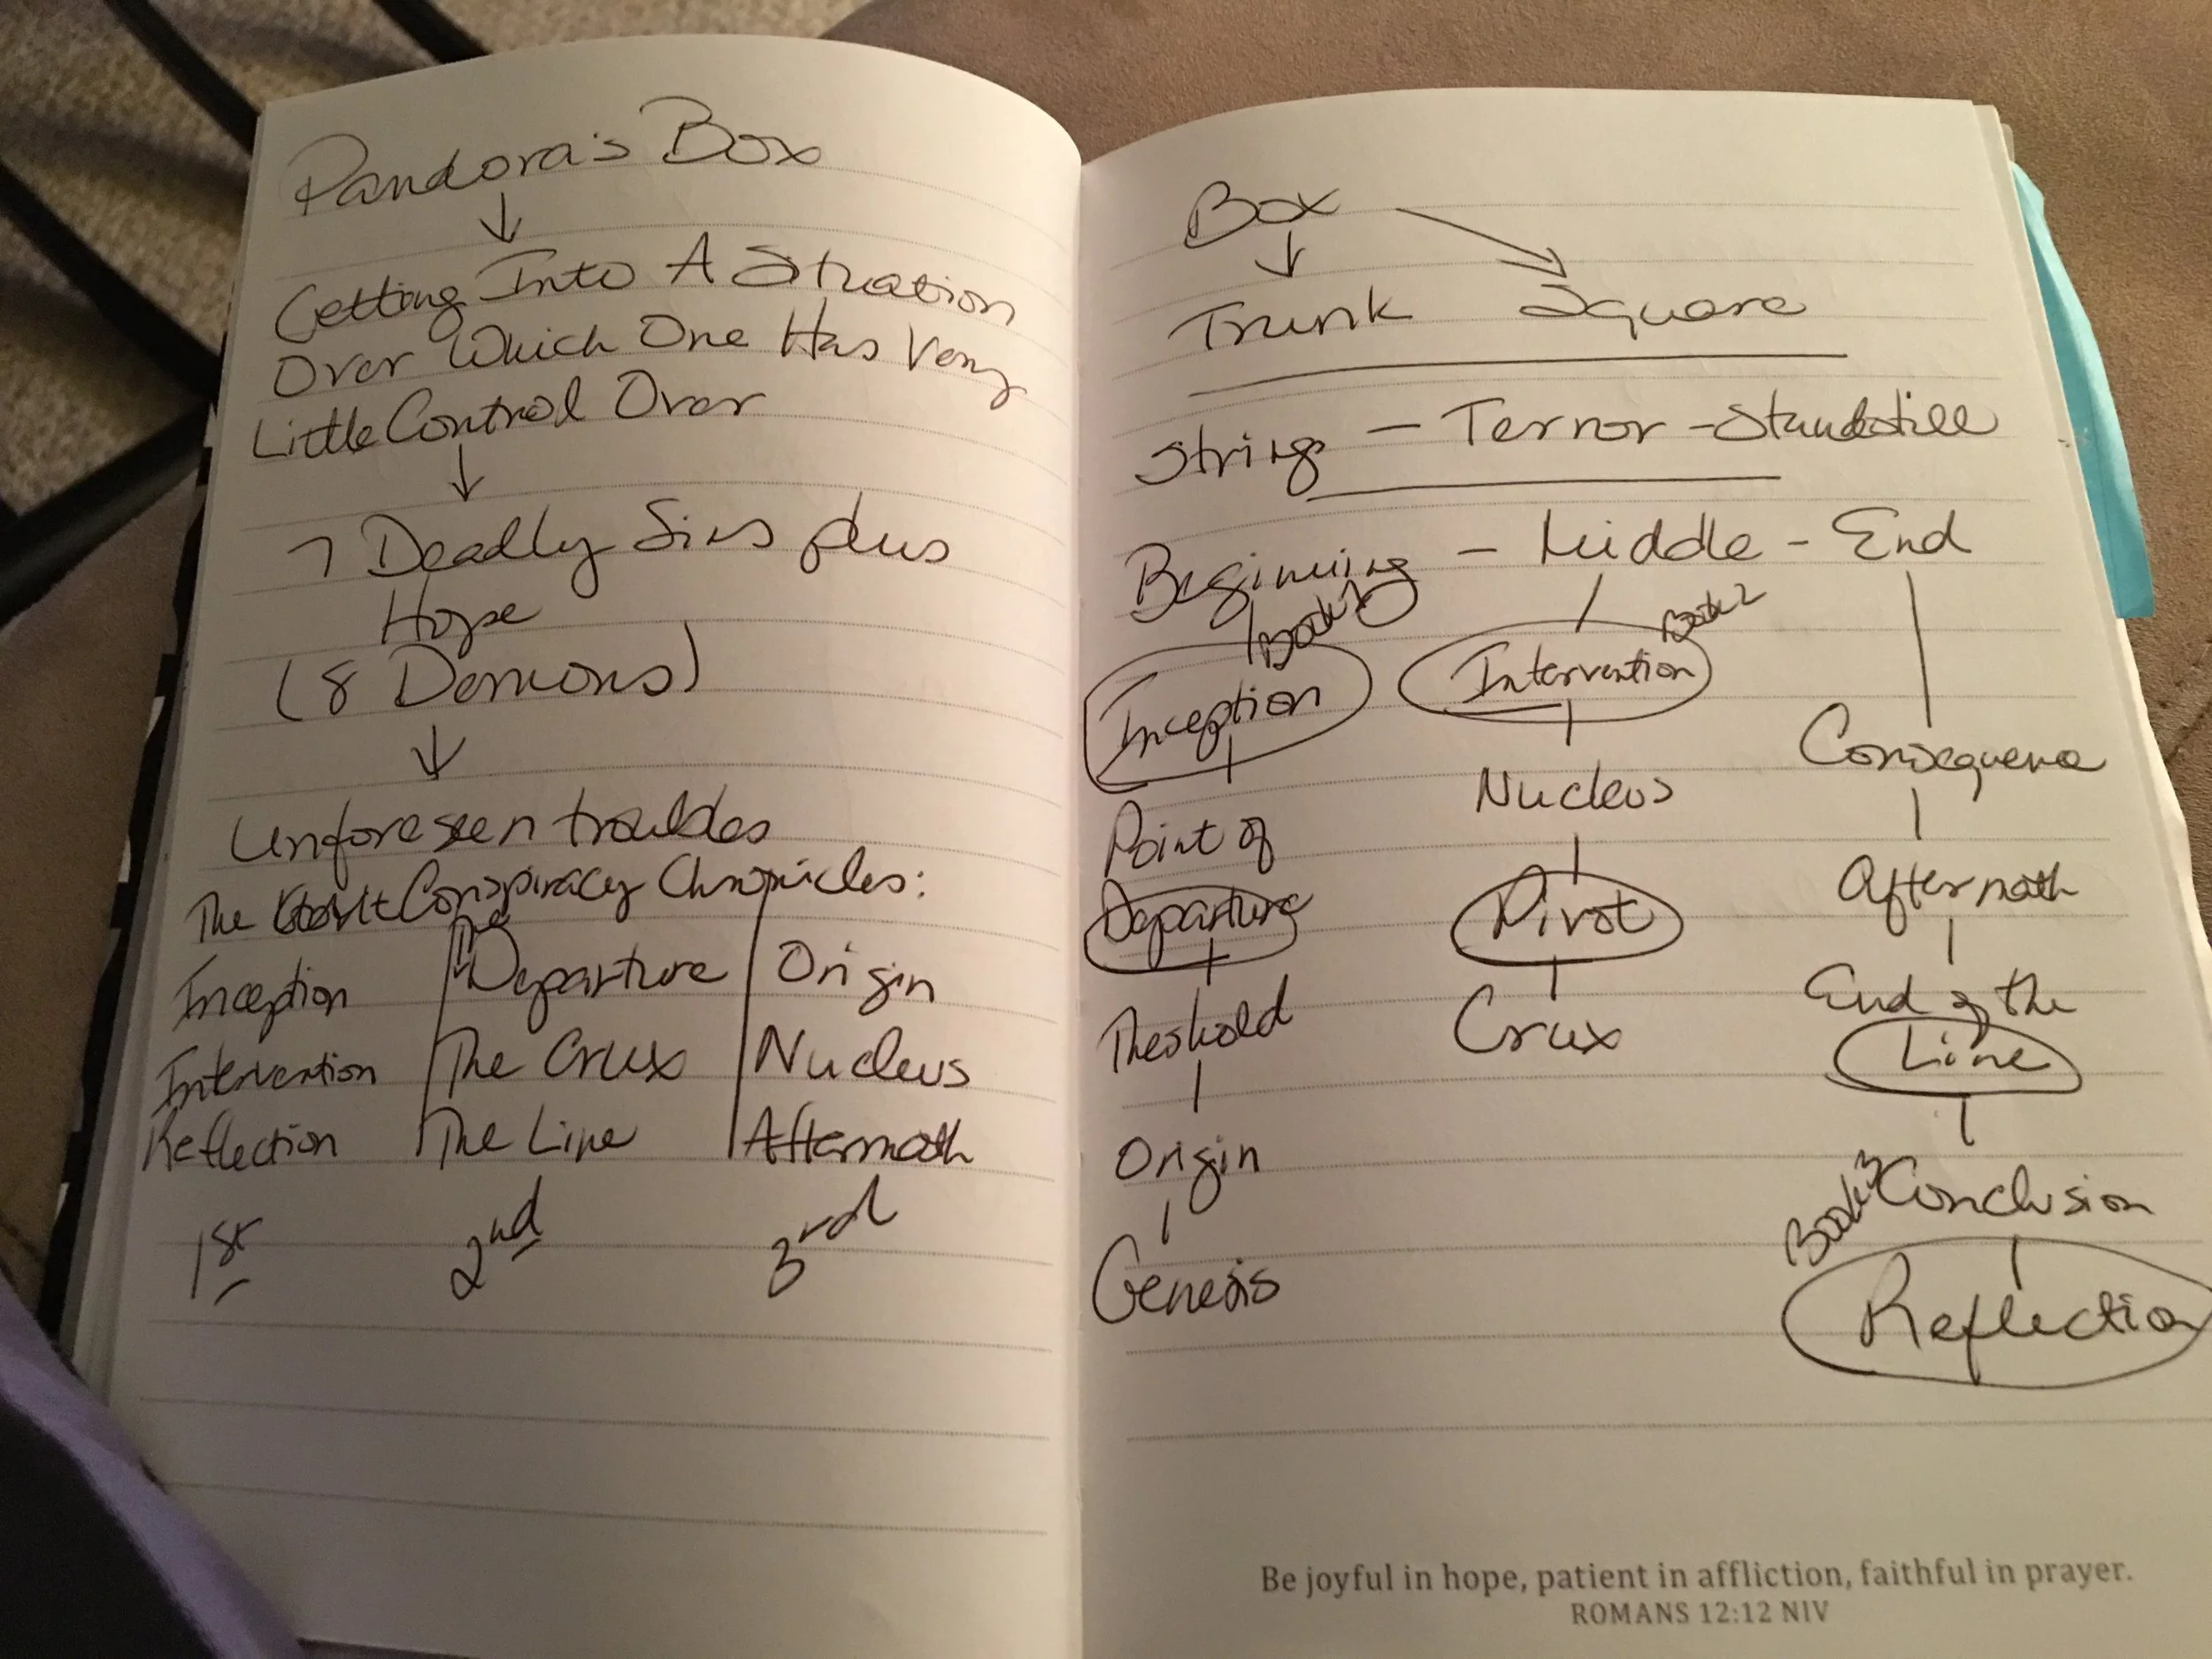 Pandora's Box
Getting Into A Situation
Over Which One Has Very
Little Control Over
7 Deadly Sins plus
Hope
(8 Demons)
Unforeseen troubles
The Conspiracy Chronicles:
Inception The Departure Origin
Intervention The Crux Nucleus
Reflection The Line Aftermath
1st 2nd 3rd
Box
Trunk Square
Strings - Terror - Standstill
Beginning - Middle - End
Book 1 Book 2
Inception Intervention
Nucleus Consequence
Point of
Departure Pivot Aftermath
Theshold Crux End of the
Line
Origin
Book 3 Conclusion
Genesis Reflection
Be joyful in hope, patient in affliction, faithful in prayer.
ROMANS 12:12 NIV